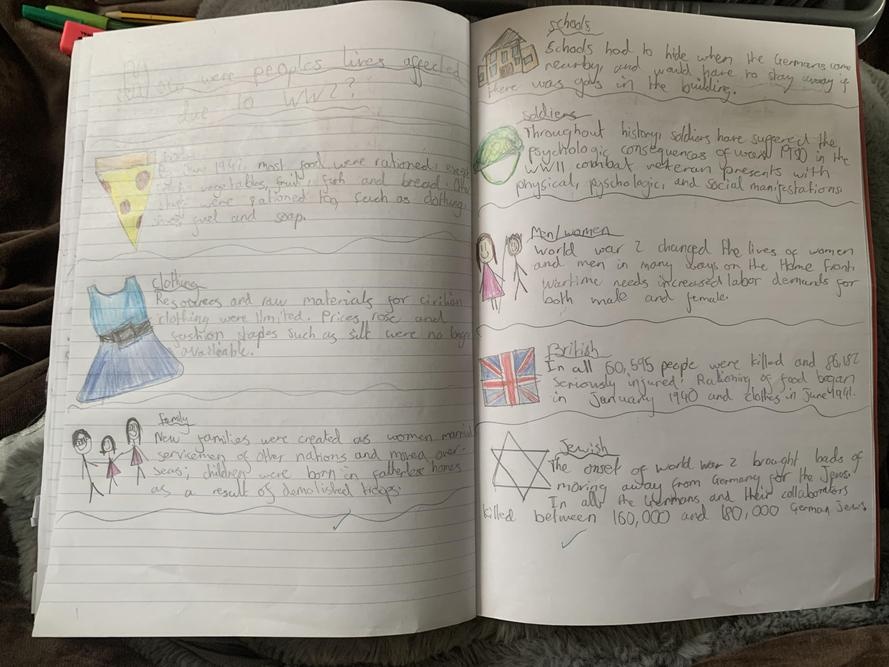 How were peoples lives affected
due to WW2?
food
By June 1941, most food were rationed, except
vegetables, fruit, fish and bread. Other
things were rationed too, such as clothing,
fuel and soap.
clothing
Resources and raw materials for civilian
clothing were limited. Prices rose and
fashion staples such as silk were no longer
available.
family
New families were created as women married
servicemen of other nations and moved over-
seas; children were born in fatherless homes
as a result of demolished troops.
schools
Schools had to hide when the Germans came
nearby, and would have to stay away if
there was gas in the building.
soldiers
Throughout history, soldiers have suffered the
psychologic consequences of war. 1990 in the
WWII combat veteran presents with
physical, pyschologic, and social manifestations.
Men/women
World war 2 changed the lives of women
and men in many ways on the Home Front.
Wartime needs increased labor demands for
both male and female.
British
In all 60,595 people were killed and 86,182
seriously injured. Rationing of food began
in January 1940 and clothes in June 1941.
Jewish
The onset of world war 2 brought loads of
moving away from Germany for the Jews.
In all, the Germans and their collaborators
killed between 160,000 and 180,000 German Jews.